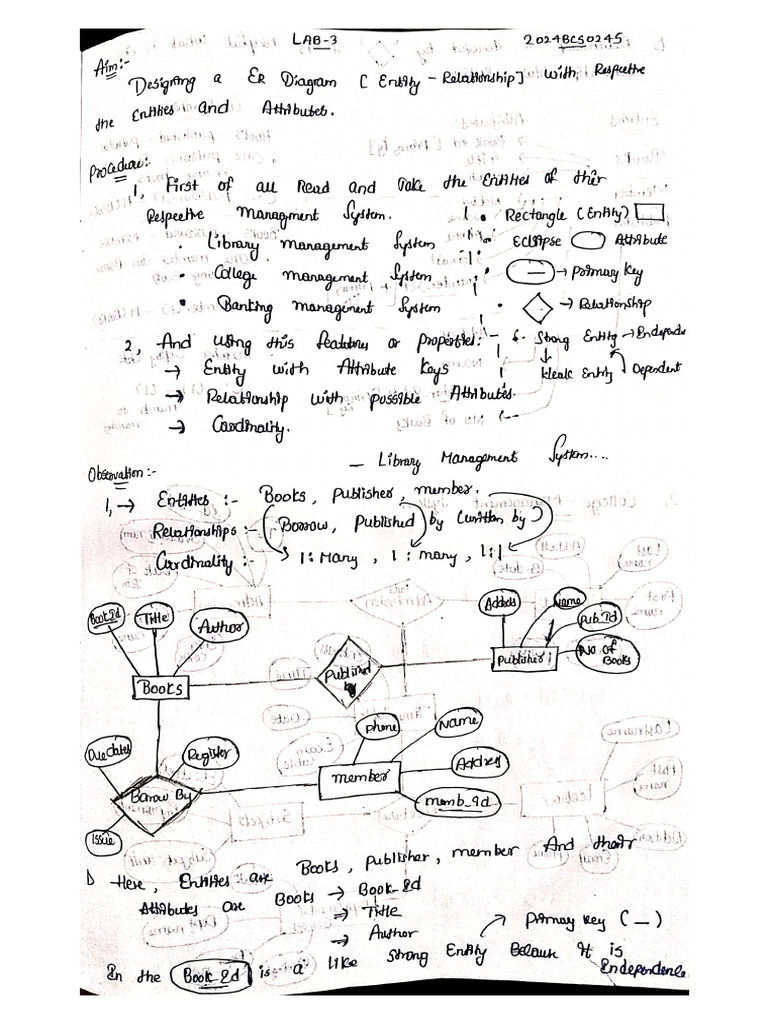 LAB-3
2024BCS0245
Aim:-
Designing a ER Diagram [Entity-Relationship] with Respective
the Entities and Attributes.
Procedure:-
1, First of all Read and Take the Entities of their
Respective Managment System.
• Library management System
• College management System
• Banking management System
• Rectangle (Entity)
• Eclipse Attribute
→ primary key
→ Relationship
Strong Entity → Independe
Weak Entity Dependent
2, And using this features or properties:-
→ Entity with Attribute Keys
→ Relationship with possible Attributes.
→ Cardinality.
Observation:-
— Library Management System....
1, → Entities :- Books, Publisher, member.
Relationships :- Borrow, Published by (written by)
Cardinality :- 1:Many, 1:many, 1:1
Book_Id
Title
Author
Books
Published by
Address
Name
Pub_Id
No of Books
Publisher
Due dates
Register
Issue
Borrow By
phone
Name
Address
memb_Id
member
Here, Entities are Books, Publisher, member And their
Attributes are Books → Book_Id
→ Title
→ Author
→ primary key (—)
In the Book_Id is a like strong Entity Because it is
Independence